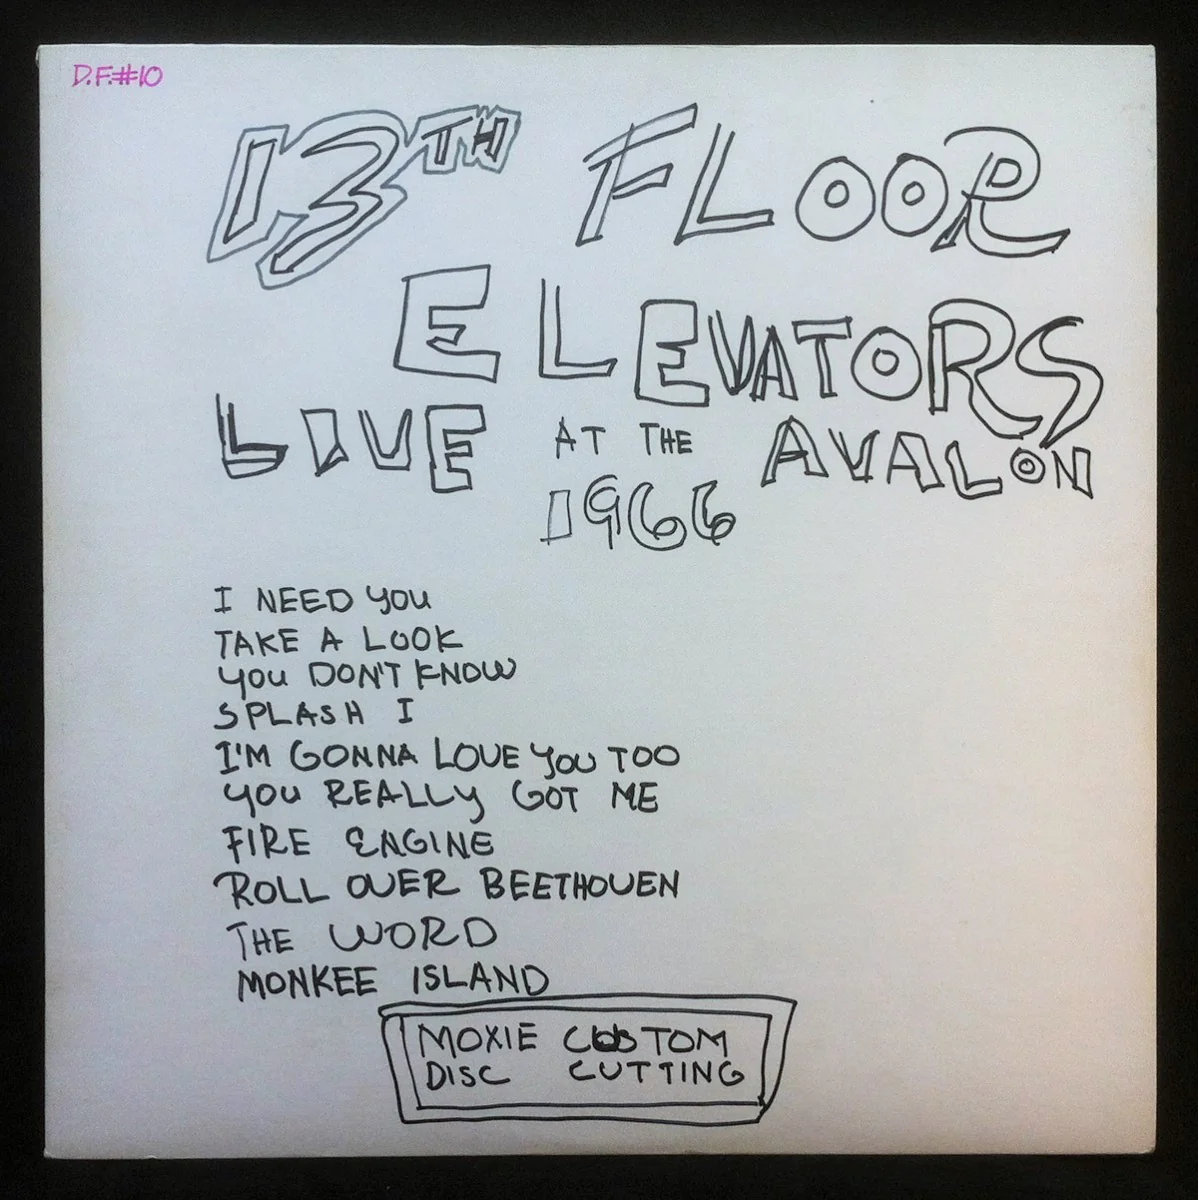 D.F.#10
13TH FLOOR
ELEVATORS
LIVE AT THE AVALON
1966
I NEED YOU
TAKE A LOOK
YOU DON'T KNOW
SPLASH I
I'M GONNA LOVE YOU TOO
YOU REALLY GOT ME
FIRE ENGINE
ROLL OVER BEETHOVEN
THE WORD
MONKEE ISLAND
MOXIE CUSTOM
DISC CUTTING